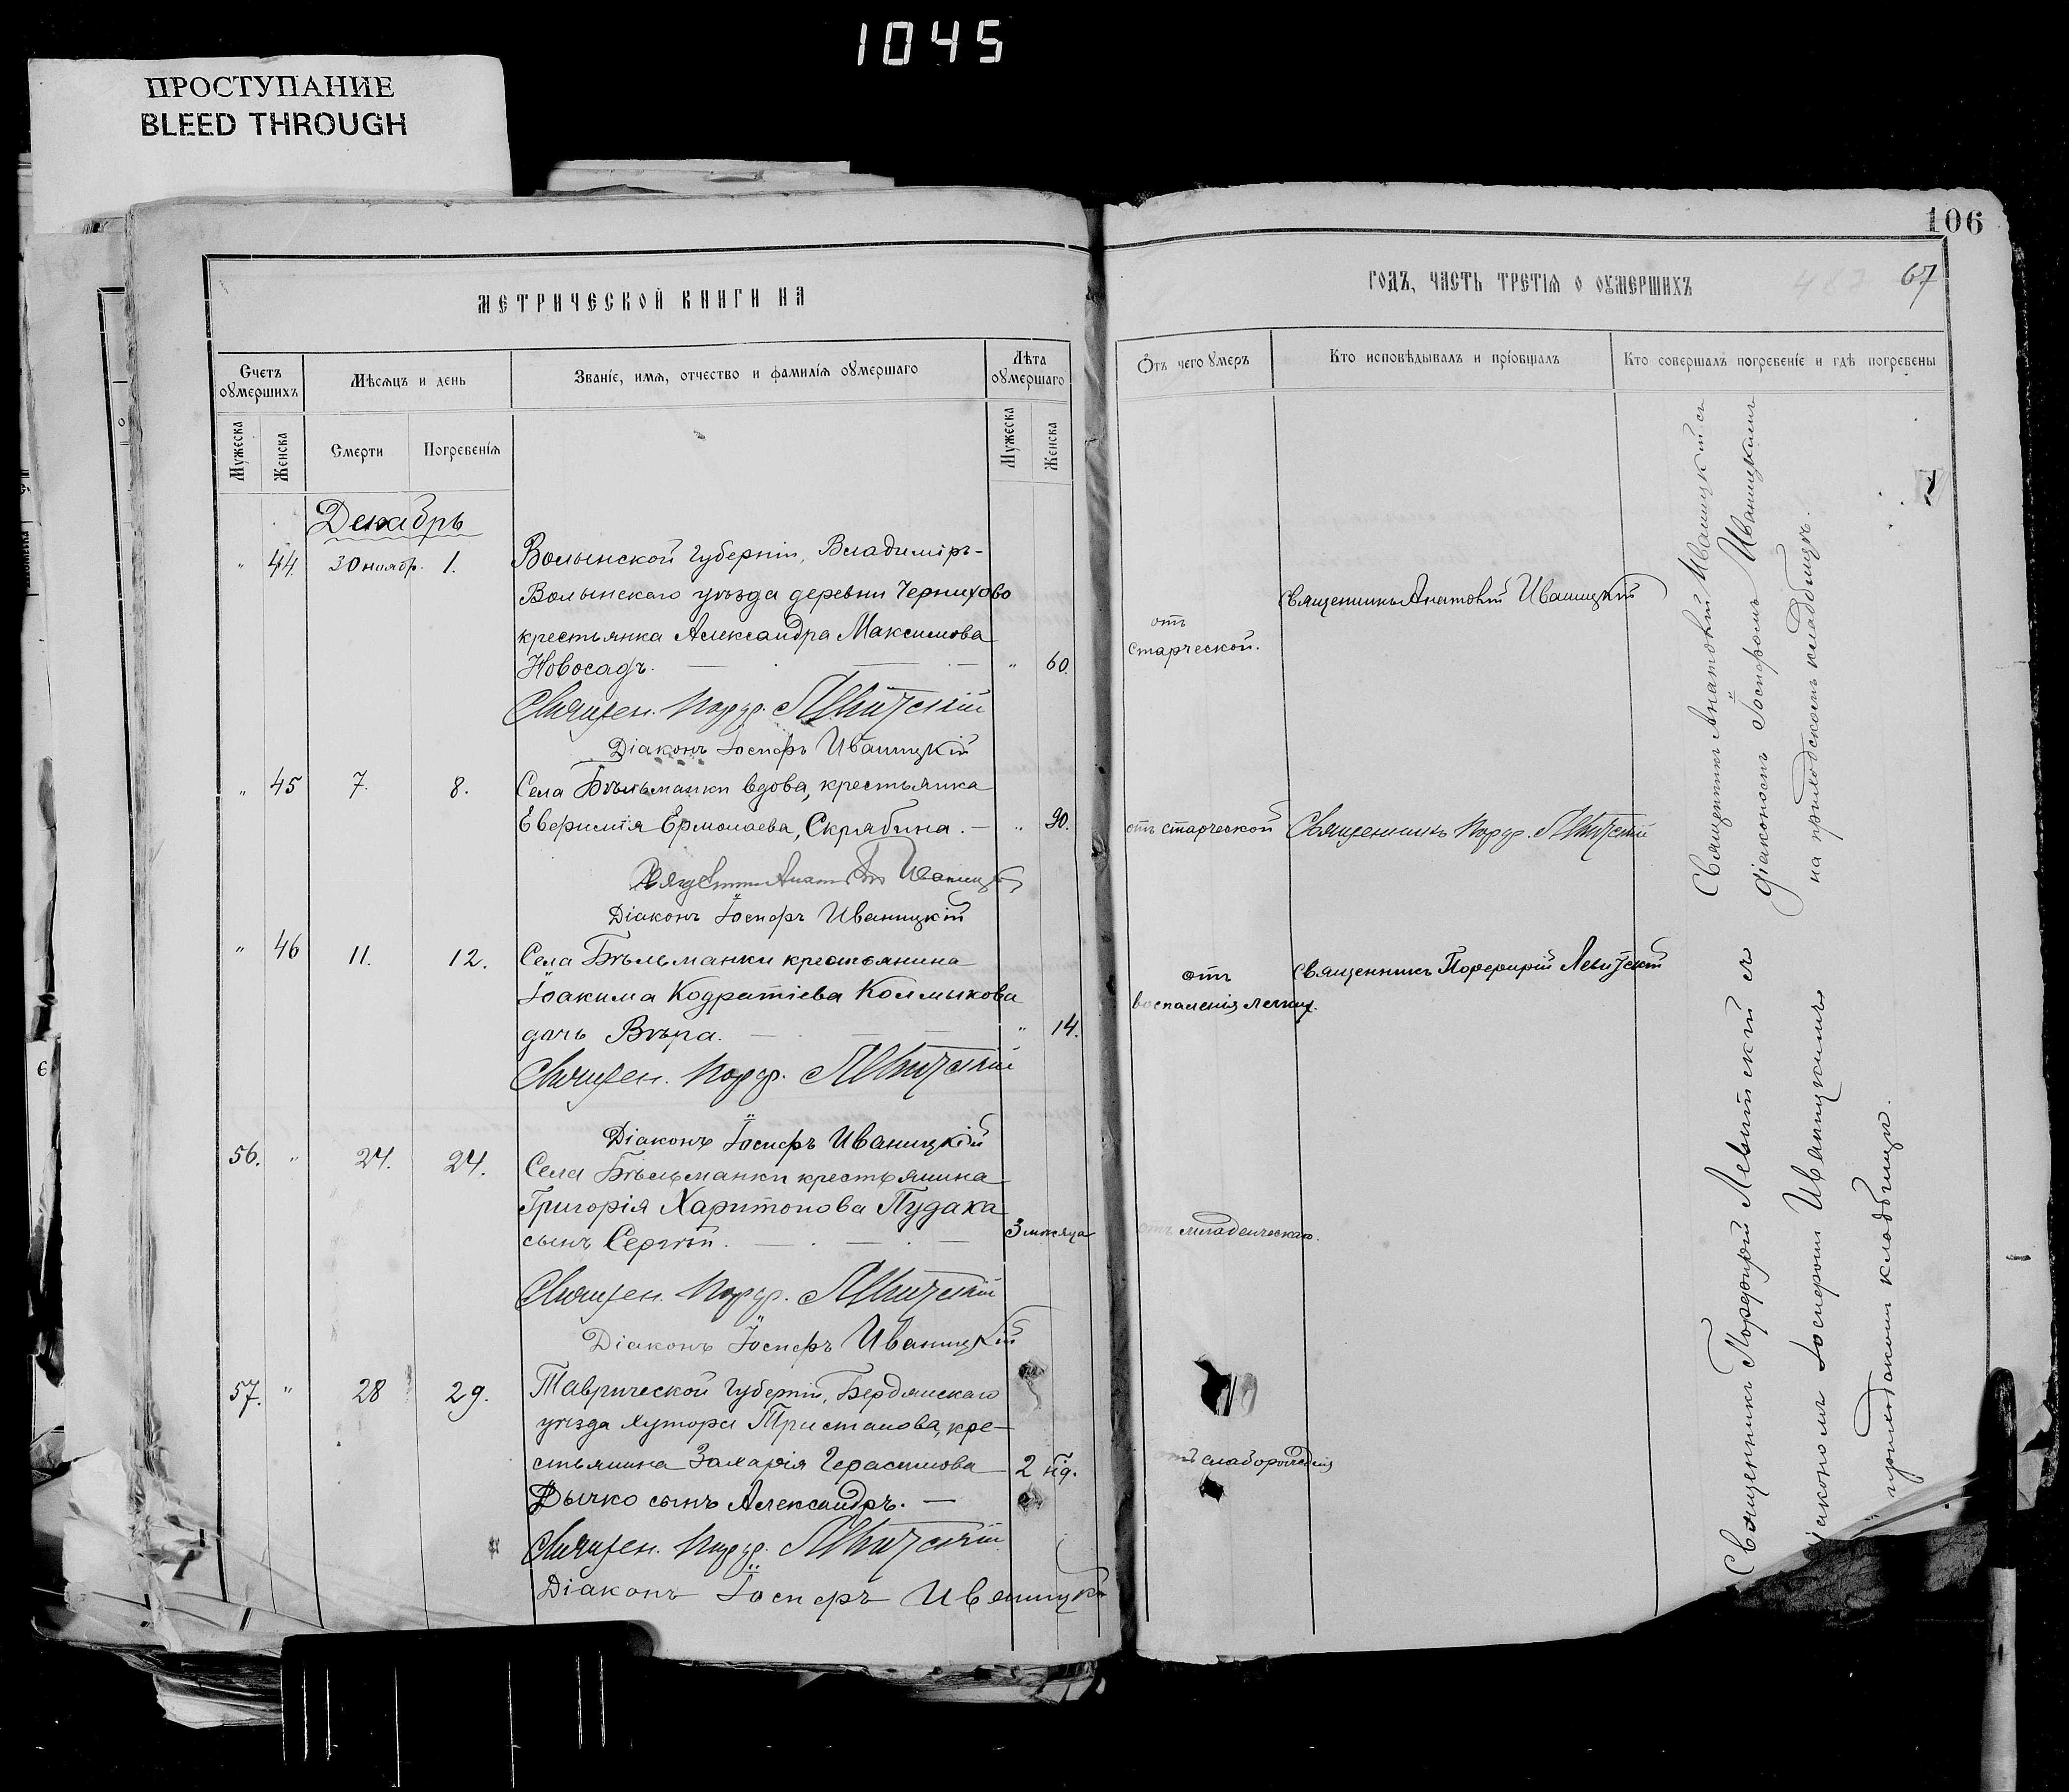 1045
ПРОСТУПАНИЕ
BLEED THROUGH
106
67
МЕТРИЧЕСКОЙ КНИГИ НА
Счетъ оумершихъ
Мѣсяцъ и день
Званіе, имя, отчество и фамилія оумершаго
Лѣта оумершаго
Мужеска
Женска
Смерти
Погребенія
Мужеска
Женска
Декабрь
" 44. 30 ноябр. 1. Волынской губерніи, Владиміръ-
Волынскаго уѣзда деревни Черниховo
крестьянка Александра Максимова
Новосадъ. " 60.
Священ. Порф. Левитскій
Діаконъ Іосифъ Иваницкій
" 45 7. 8. Села Бѣльманки вдова, крестьянка
Евфимія Ермолаева, Скрябина. " 90.
Священникъ Анатолій Иваницкій
Діаконъ Іосифъ Иваницкій
" 46 11. 12. Села Бѣльманки крестьянина
Іоакима Кодратіева Колмыкова
дочь Вѣра. " 14.
Священ. Порф. Левитскій
Діаконъ Іосифъ Иваницкій
56. " 24. 24. Села Бѣльманки крестьянина
Григорія Харитонова Пудака
сынъ Сергѣй. 3 мѣсяца
Священ. Порф. Левитскій
Діаконъ Іосифъ Иваницкій
57. " 28 29. Таврической губерніи, Бердянскаго
уѣзда хутора Тристанова, кре-
стьянина Захарія Герасимова 2 нд.
Дычко сынъ Александръ.
Священ. Порф. Левитскій
Діаконъ Іосифъ Иваницкій
ГОДЪ, ЧАСТЬ ТРЕТІЯ О ОУМЕРШИХЪ
Отъ чего умеръ
Кто исповѣдывалъ и пріобщалъ
Кто совершалъ погребеніе и гдѣ погребены
отъ
старческой.
Священникъ Анатолій Иваницкій
отъ старческой
Священникъ Порф. Левитскій
отъ
воспаленія легких.
Священникъ Порфирій Левитскій
отъ младенческаго.
отъ слаборожденія
Священникъ Анатолій Иваницкій съ
діакономъ Іосифомъ Иваницкимъ
на приходскомъ кладбищѣ.
Священникъ Порфирій Левитскій съ
діакономъ Іосифомъ Иваницкимъ
приходскомъ кладбищѣ.